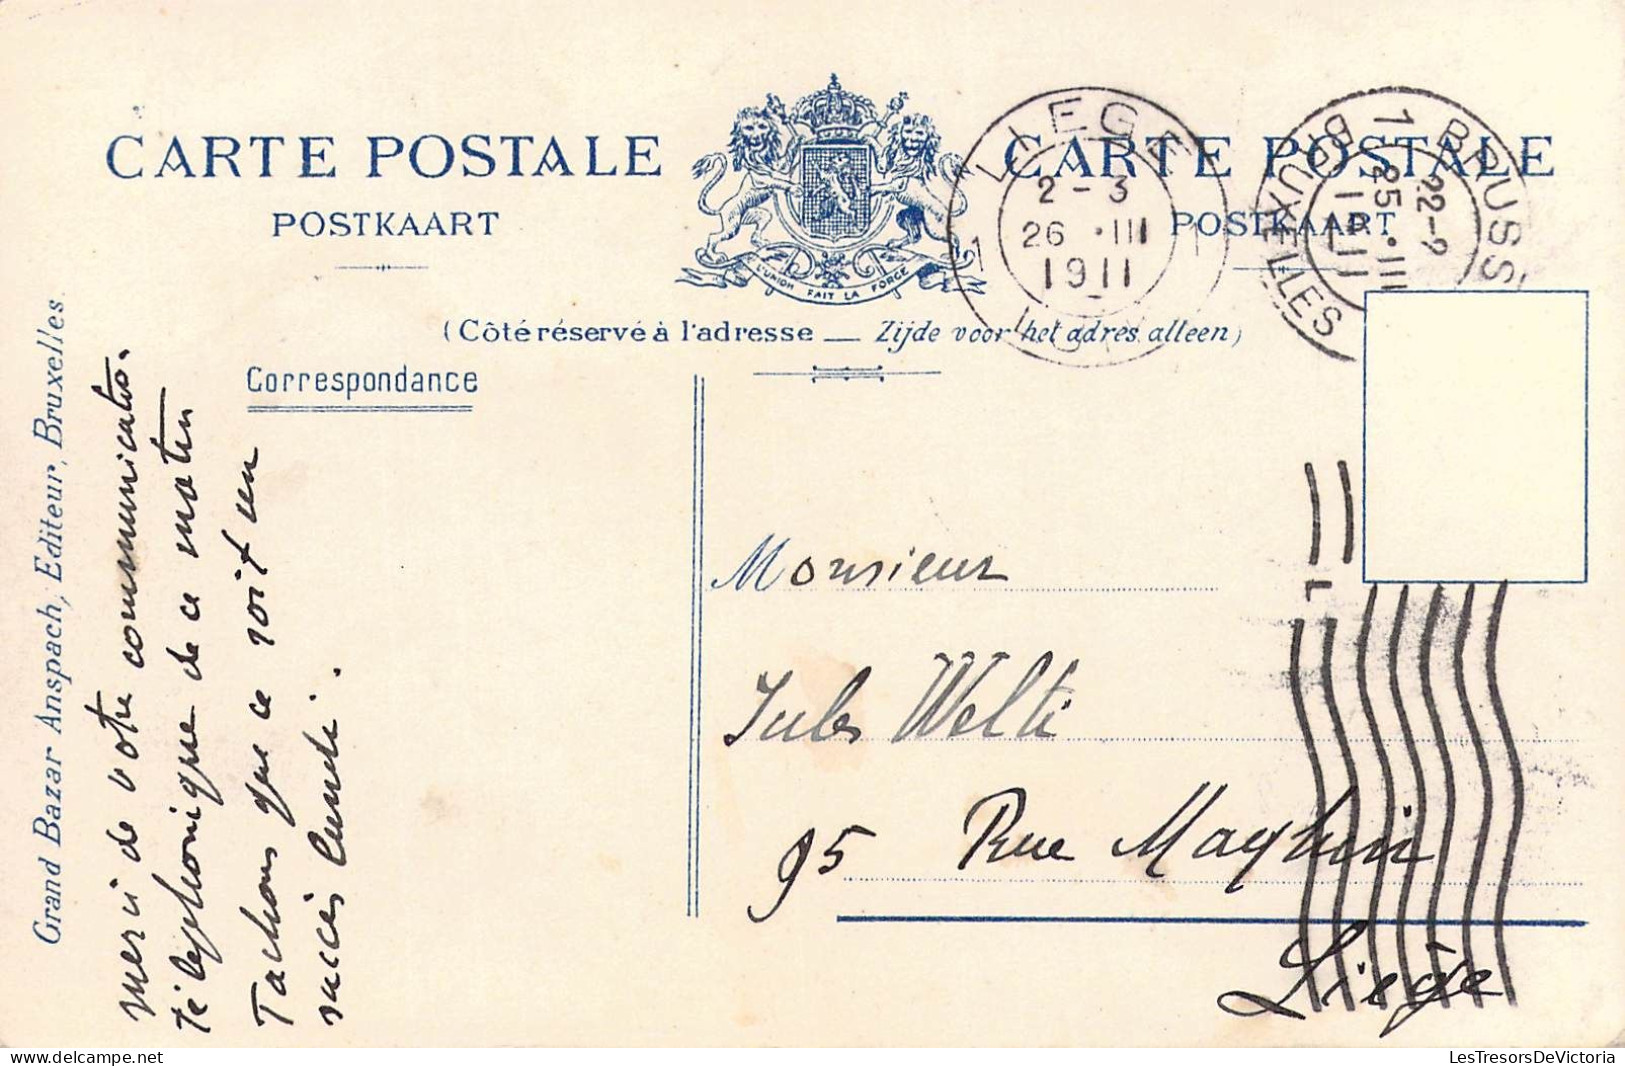 CARTE POSTALE
POSTKAART
L'UNION FAIT LA FORCE
CARTE POSTALE
POSTKAART
LIEGE
2-3
26 •III
1911
1 1
BRUXELLES 1 BRUSS
22-2
25 •III
1911
(Côté réservé à l'adresse — Zijde voor het adres alleen)
Correspondance
Grand Bazar Anspach, Editeur, Bruxelles
merci de votre communicatio.
téléphonique de ce matin
Tachons que ce soit un
succès lundi.
Monsieur
Jules Welti
95 Rue Maghin
Liège
LesTresorsDeVictoria